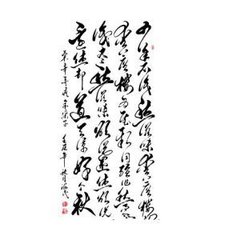 少年不识愁滋味爱上层楼
爱上层楼为赋新词强说愁而今
识尽愁滋味欲说还休欲说
还休却道天凉好个秋